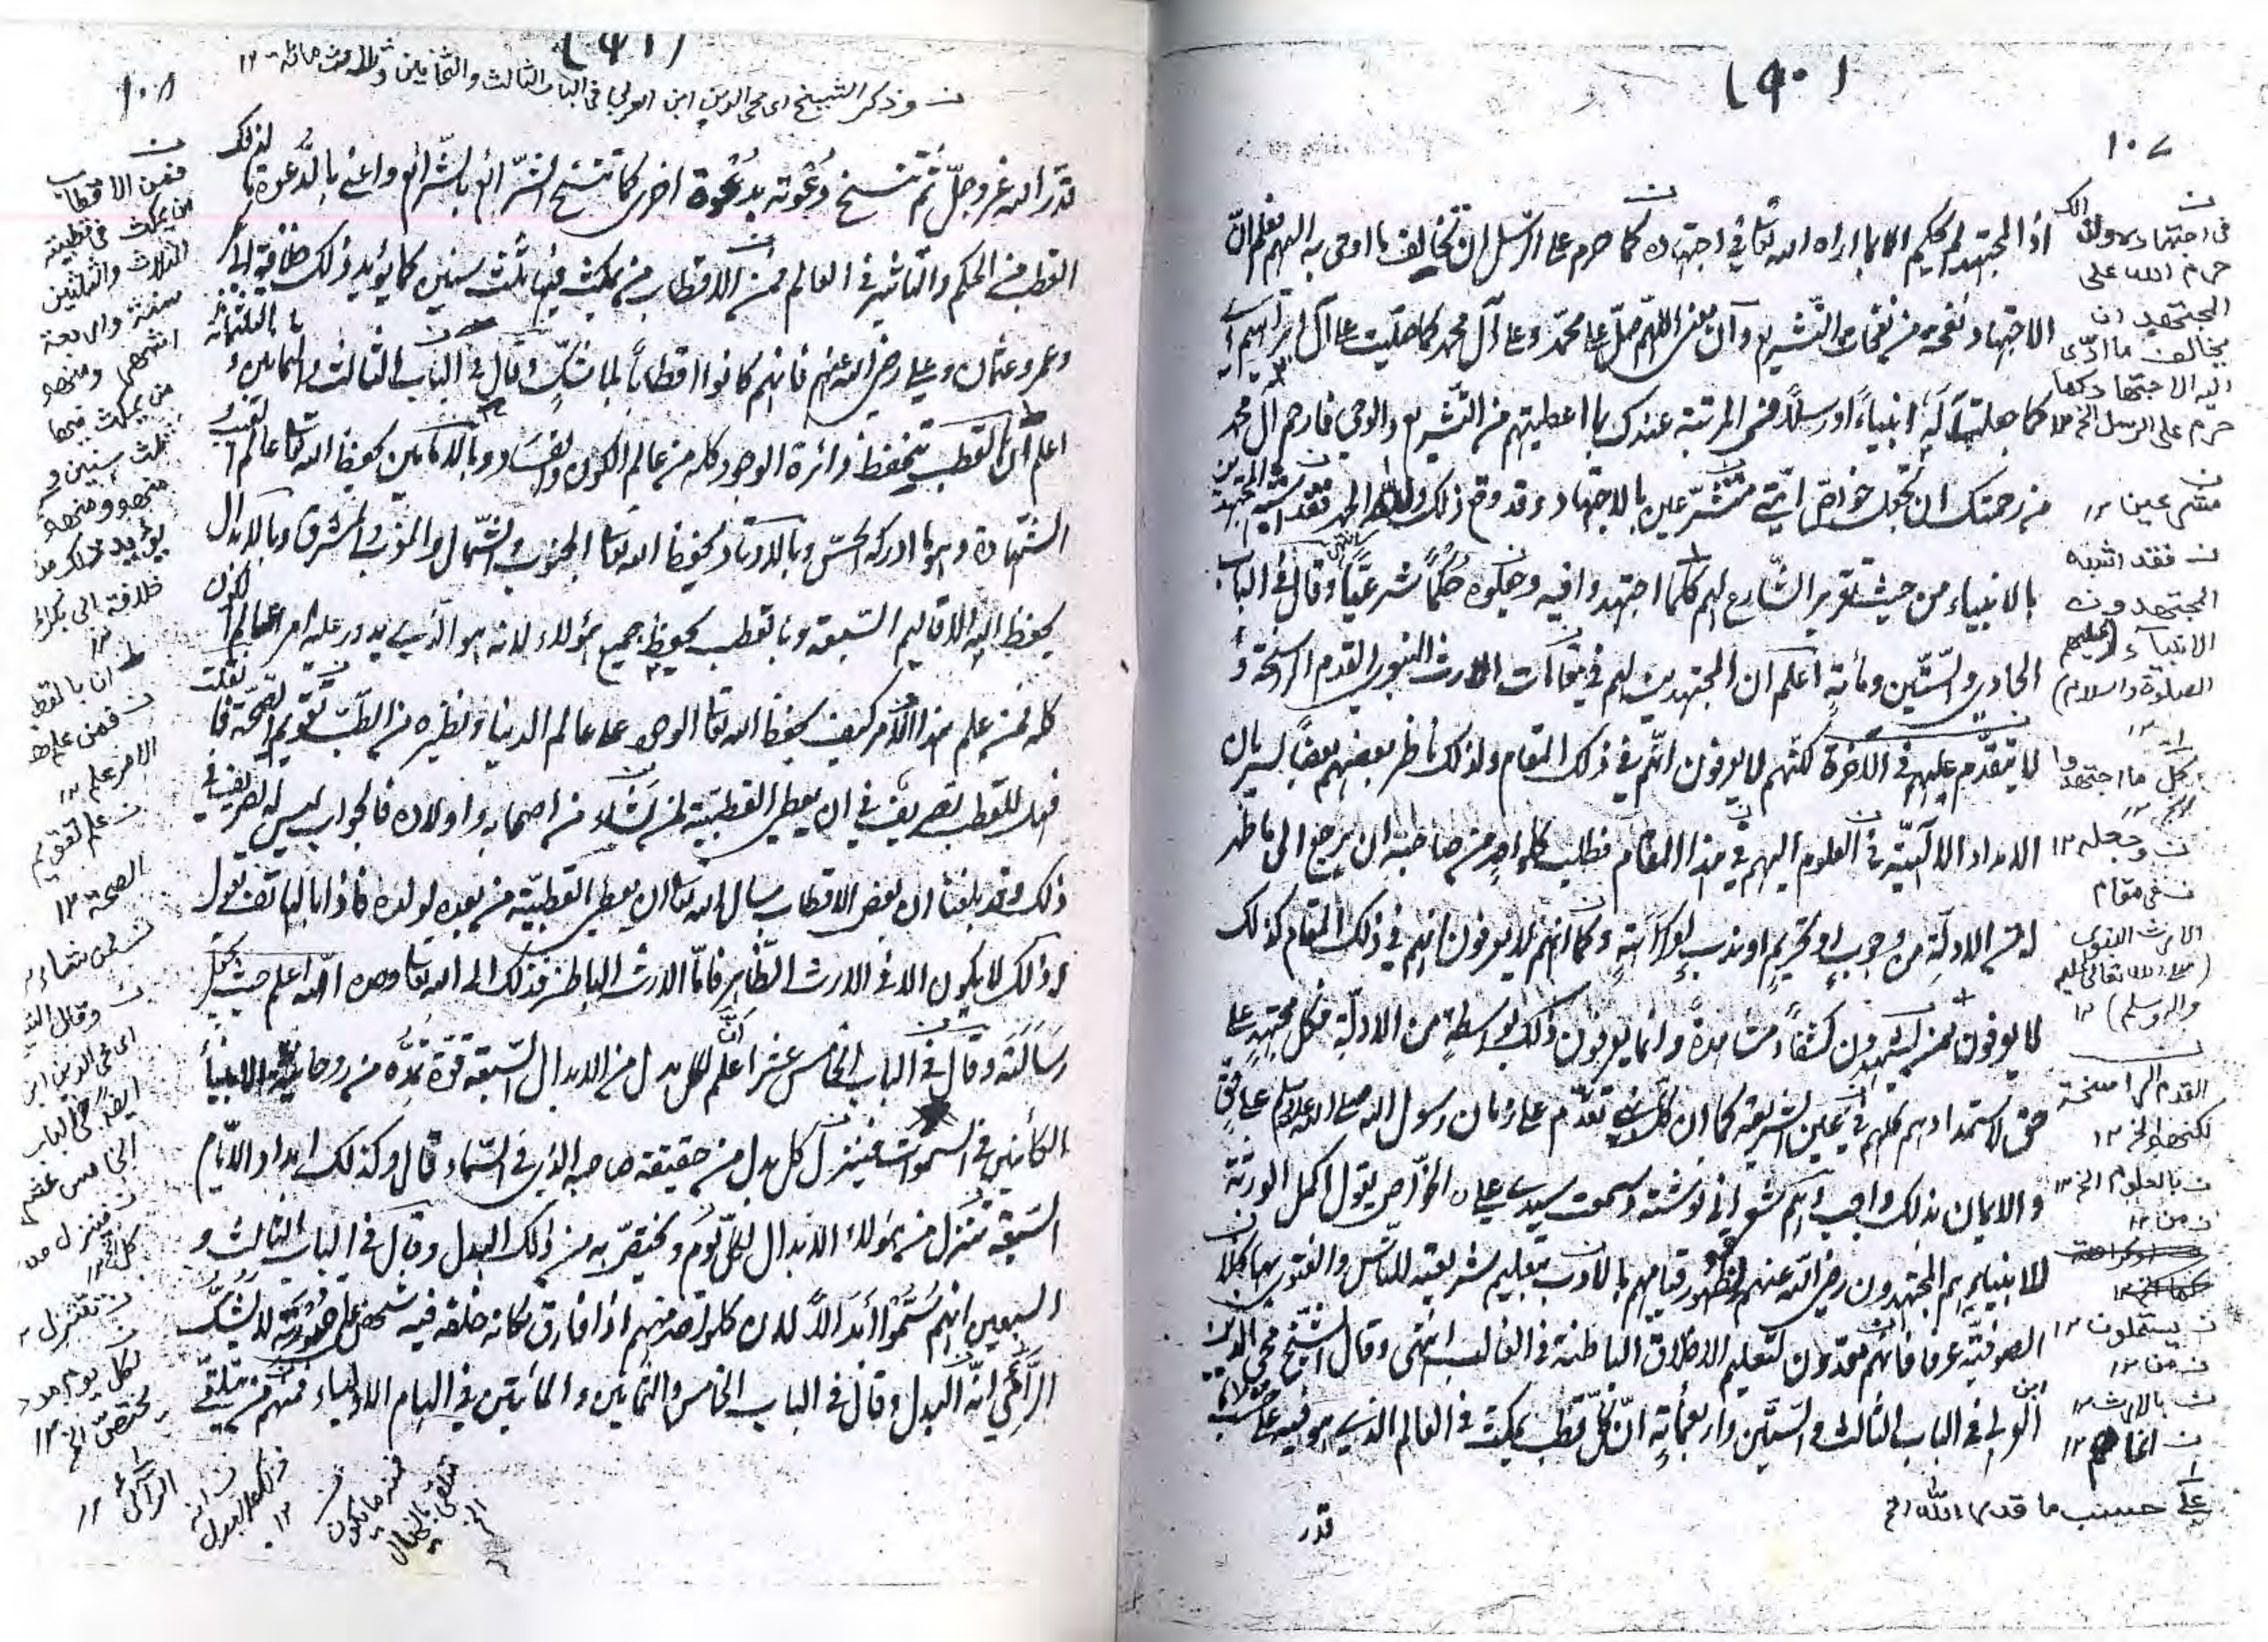 (٩٠)
١٠٧
اذ المجتهد لم يحكم الا بما اراه الله تعا في اجتهاده كما حرم على الرسل ان تخالف ما اوحى به اليهم فعلم انّ
الاجتهاد نفحة من نفحات التّشريع وآن معنى اللّهمّ صلّ على محمّد وعلى آل محمد كما صلّيت على آل ابراهيم اى
كما صليت آله انبياءً او رسلاً فمن المرتبة عندك بما اعطيتهم من التّشريع والوحي فارحم آل محمد
من رحمتك ان تجعل خواصّ امّتى متشرّعين بالاجتهاد وقد وقع ذلك ولله الحمد فقد اشبه المجتهدين
بالانبياء من حيث تقرير الشّارع لهم كلما اجتهدوا فيه وجعلوه حُكماً شرعيّاً وقال في الباب
الحادي والسّتّين ومأية اعلم ان المجتهدين لهم في مقامات الارث النبوي القدم الراسخة و
لا يتقدّم عليهم في الآخرة لكنّهم لا يعرفون انّهم في ذلك المقام ولذلك ناظر بعضهم بعضاً لسريان
الامداد الالٓهيّة في العلوم اليهم في هذا المقام فطلب كل واحد من صاحبه ان يرجع الى ما ظهر
له من الادلّة من وجوب او تحريم او ندب او كراهة وكما انّهم لا يعرفون انهم في ذلك المقام كذلك
لا يعرفون بمن يستمدون كشفاً ومشاهدةً وانما يعرفون ذلك بواسطة من الادلّة فكل مجتهد على
حق لاستمدادهم كلهم في عين الشريعة كما ان كل نبي تقدّم على زمان رسول الله صلى الله عليه وسلم على حق
والايمان بذلك واجب وسمعت سيدي علي الخوّاص يقول اكمل الورثة
للانبياء هم المجتهدون رضي الله عنهم لظهور قيامهم بالادب بتعليم شريعته للنّاس والفتوى بها بخلاف
الصوفيّة عرفا فانهم معدّون لتعليم الاخلاق الباطنة في الغالب انتهى وقال الشيخ محيى الدين
ابن العربي في الباب الثالث والسّتّين واربعمأية انّ كلّ قطب يمكث في العالم الذي هو فيه على حسب ما
قدر
فى اجتهاده ولذلك
حرم الله على
المجتهد ان
يخالف ما ادّى
اليه الاجتهاد كما
حرم على الرسل الخ ١٢
متشرعين ١٢
فقد اشبه
المجتهدون
الانبياء (عليهم
الصلوة والسلام)
كل ما اجتهدوا
وجعله ١٢
فى مقام
الارث النبوى
القدم الراسخة
لكنهم الخ ١٢
بالعلوم الخ ١٢
من ١٢
يستمدون ١٢
من ١٢
بالارث ١٢
انما هم ١٢
على حسب ما قدره الله الخ
(٩١)
١٠٨
وذكر الشيخ اى محى الدين ابن العربى فى الباب الثالث والثمانين وثلاث مائة ١٢
قدر الله عزوجلّ ثم تنسخ دعوته بدعوة اخرى كما تنسخ الشّرائع بالشّرائع واعني بالدعوة ما لذلك
القطب من الحكم والتاثير في العالم فمن الاقطاب من يمكث فيها ثلث سنين كما يؤيد ذلك خلافة ابي بكر
وعمر وعثمان وعلي رضي الله عنهم فانهم كانوا اقطاباً بلا شكّ وقال في الباب الثالث والثمانين و
اعلم ان بالقطب تنحفظ دائرة الوجود كله من عالم الكون والفساد وبالامامين يحفظ الله تعا عالم الغيب و
الشهادة وهو ما ادركه الحسّ وبالاوتاد يحفظ الله تعا الجنوب والشّمال والمغرب والمشرق وبالابدال
يحفظ الله الاقاليم السّبعة وبالقطب يحفظ جميع هؤلاء لانه هو الّذي يدور عليه امر عالم الكون
كله فمن علم هذا الامر كيف يحفظ الله تعا الوجود على عالم الدنيا ونظيره من الطّب تقويم الصّحّة فان قلت
فهل للقطب تصريف في ان يعطي القطبيّة لمن شاء من اصحابه واولاده فالجواب ليس له تصريف في
ذلك وقد بلغنا ان بعض الاقطاب سأل الله تعا ان يعطي القطبيّة من بعده لولده فاذا بالهاتف يقول
له ذلك لا يكون الا في الارث الظّاهر فامّا الارث الباطن فذلك الى الله تعا وحده الله اعلم حيث يجعل
رسالته وقال في الباب الخامس عشر اعلم انّ لكل بدل من الابدال السّبعة قوّة تمدّه من روحانية الانبياء
الكائنين في السموات فينزل كل بدل من حقيقة صاحبه الذي في السّماء قال وكذلك امداد الايّام
السّبعة تتنزل من هؤلاء الابدال لكلّ يوم ويختصّ به من ذلك البدل وقال في الباب الثالث و
السبعين انهم سمّوا ابدالاً لان كلواحد منهم اذا فارق مكانه خلفه فيه شخص على صورته لا يشكّ
الرّائي انّه البدل وقال في الباب الخامس والثمانين والمأيتين في الهام الاولياء فمنهم من يتلقّى
فمن الاقطاب
من يمكث فى قطبيته
الثلاث والثلثين
سنة واربعة
اشهر ومنهم
من يمكث فيها
ثلث سنين و
منهم ومنهم
يؤيد ذلك من
خلافة ابى بكر
ان بالقطب
فمن علم هذا
الامر علم ١٢
علم تقويم
الصحة ١٢
لمن شاء
وقال الشيخ
اى محى الدين ابن
ايضا فى الباب
الخامس عشر
فتنزل من
كل الخ ١٢
تتنزل
لكل يوم مدد
يختصّ الخ ١٢
الرائى ١٢
انه
ذلك البدل ١٢
فمنه ما يكون
متلقى بالخيال